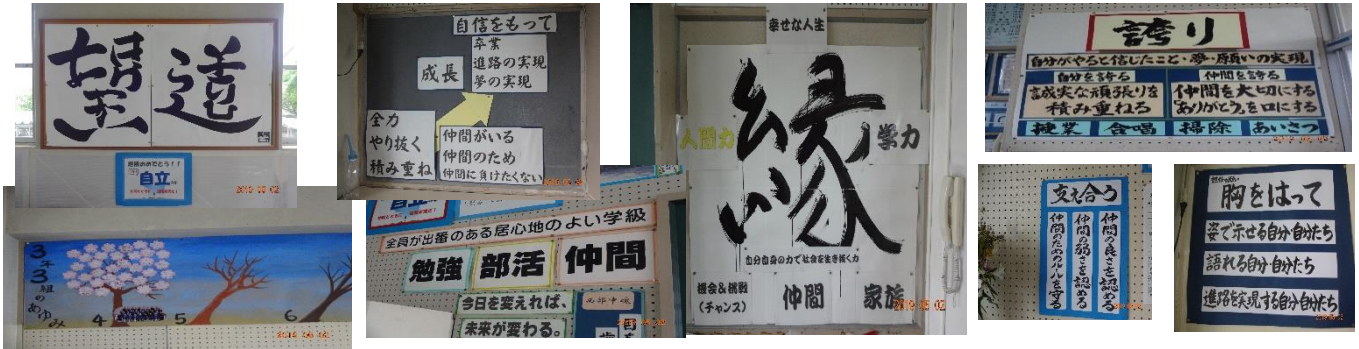 望 道
進級おめでとう!!
自立
2019 05 02
3年3組のあゆみ
4
5
6
自信をもって
卒業
進路の実現
夢の実現
成長
全力
やり抜く
積み重ね
仲間がいる
仲間のため
仲間に負けたくない
自立
全員が出番のある居心地のよい学級
勉強
部活
仲間
今日を変えれば、
未来が変わる。
西部中魂
幸せな人生
縁
人間力
学力
自分自身の力で社会を生き抜く力
機会&挑戦
(チャンス)
仲間
家族
2019 05 02
誇り
自分がやると信じたこと・夢・願いの実現
自分を誇る
誠実な頑張りを
積み重ねる
仲間を誇る
仲間を大切にする
"ありがとう"を口にする
授業
合唱
掃除
あいさつ
支え合う
仲間の良さを認める
仲間の弱さを認める
仲間のためのルールを守る
胸をはって
姿で示せる自分・自分たち
語れる自分・自分たち
進路を実現する自分・自分たち